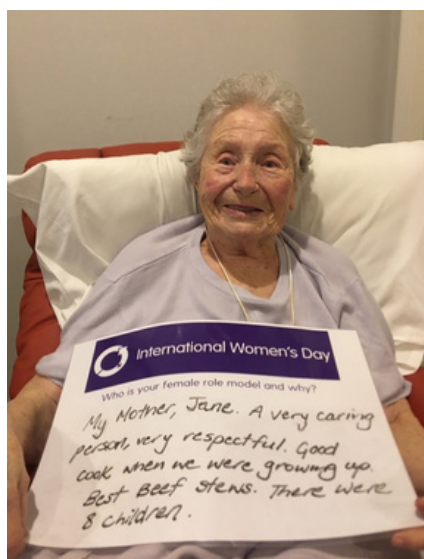 International Women's Day
Who is your female role model and why?
My Mother, Jane. A very caring
person, very respectful. Good
cook when we were growing up.
Best Beef stews. There were
8 children.